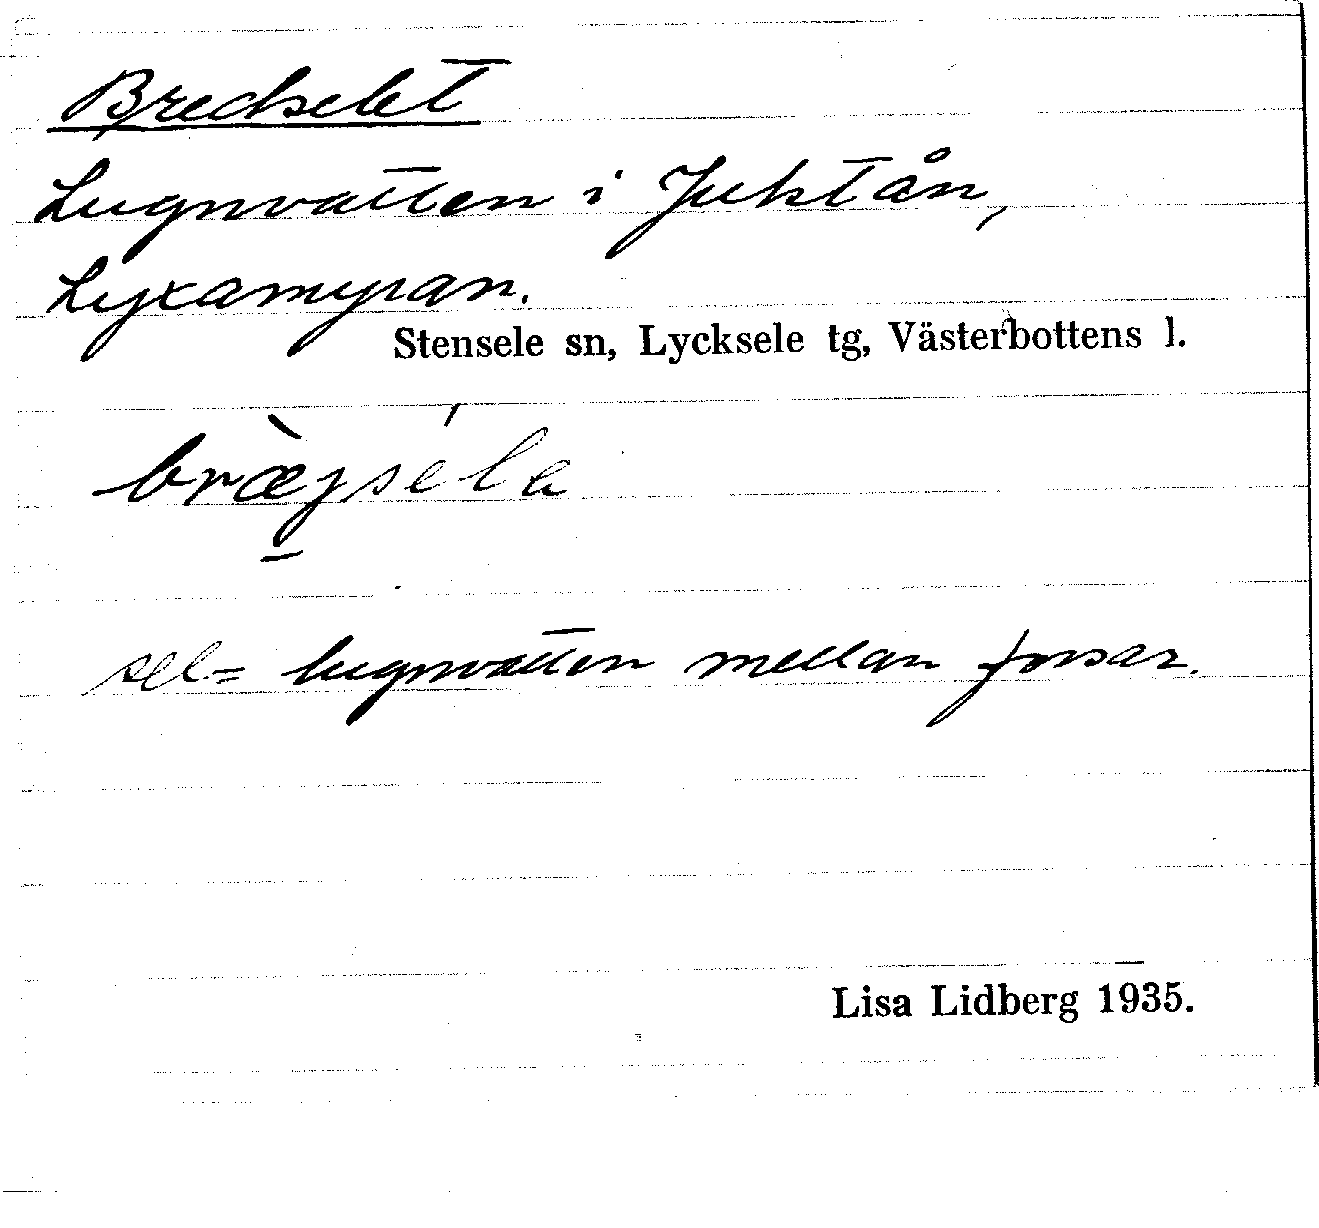 Bredselet
Lugnvatten i Juktån,
Lyxamyran.
Stensele sn, Lycksele tg, Västerbottens l.
bræ̀jséla
sel = lugnvatten mellan forsar.
Lisa Lidberg 1935.